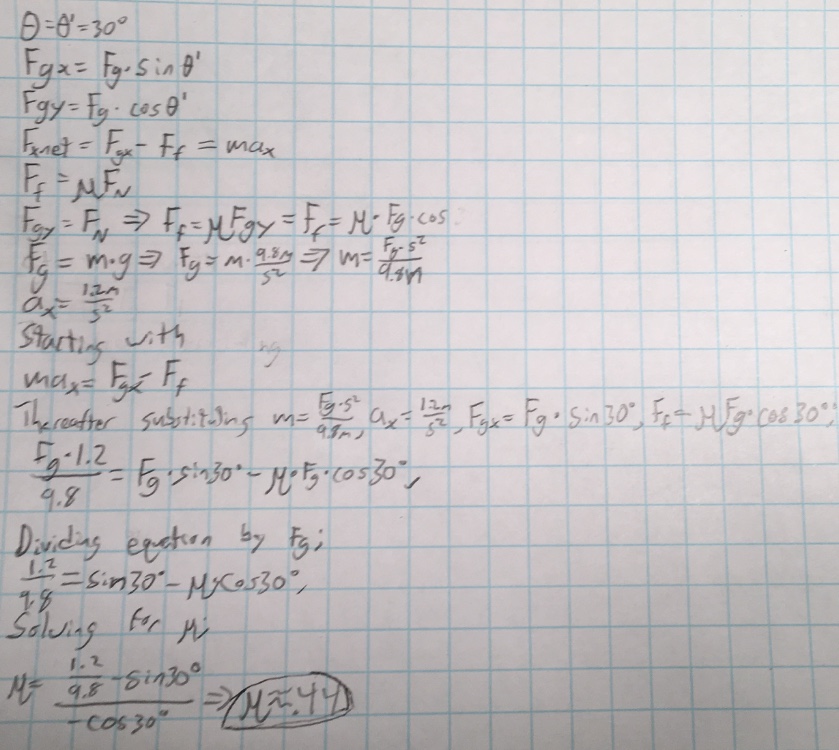 θ = θ' = 30°
Fgx = Fg · sin θ'
Fgy = Fg · cos θ'
Fxnet = Fgx - Ff = max
Ff = μFN
Fgy = FN ⇒ Ff = μFgy = Ff = μ · Fg · cos
Fg = m · g ⇒ Fg = m · 9.8m/s² ⇒ m = Fg · s²/9.8m
ax = 1.2m/s²
Starting with
max = Fgx - Ff
Thereafter substituting m = Fg · s²/9.8m, ax = 1.2m/s², Fgx = Fg · sin 30°, Ff = μFg · cos 30°,
Fg · 1.2/9.8 = Fg · sin30° - μ · Fg · cos30°,
Dividing equation by Fg;
1.2/9.8 = sin30° - μ · cos30°,
Solving for μ;
μ = (1.2/9.8 - sin30°)/(-cos30°) ⇒ μ ≈ .44